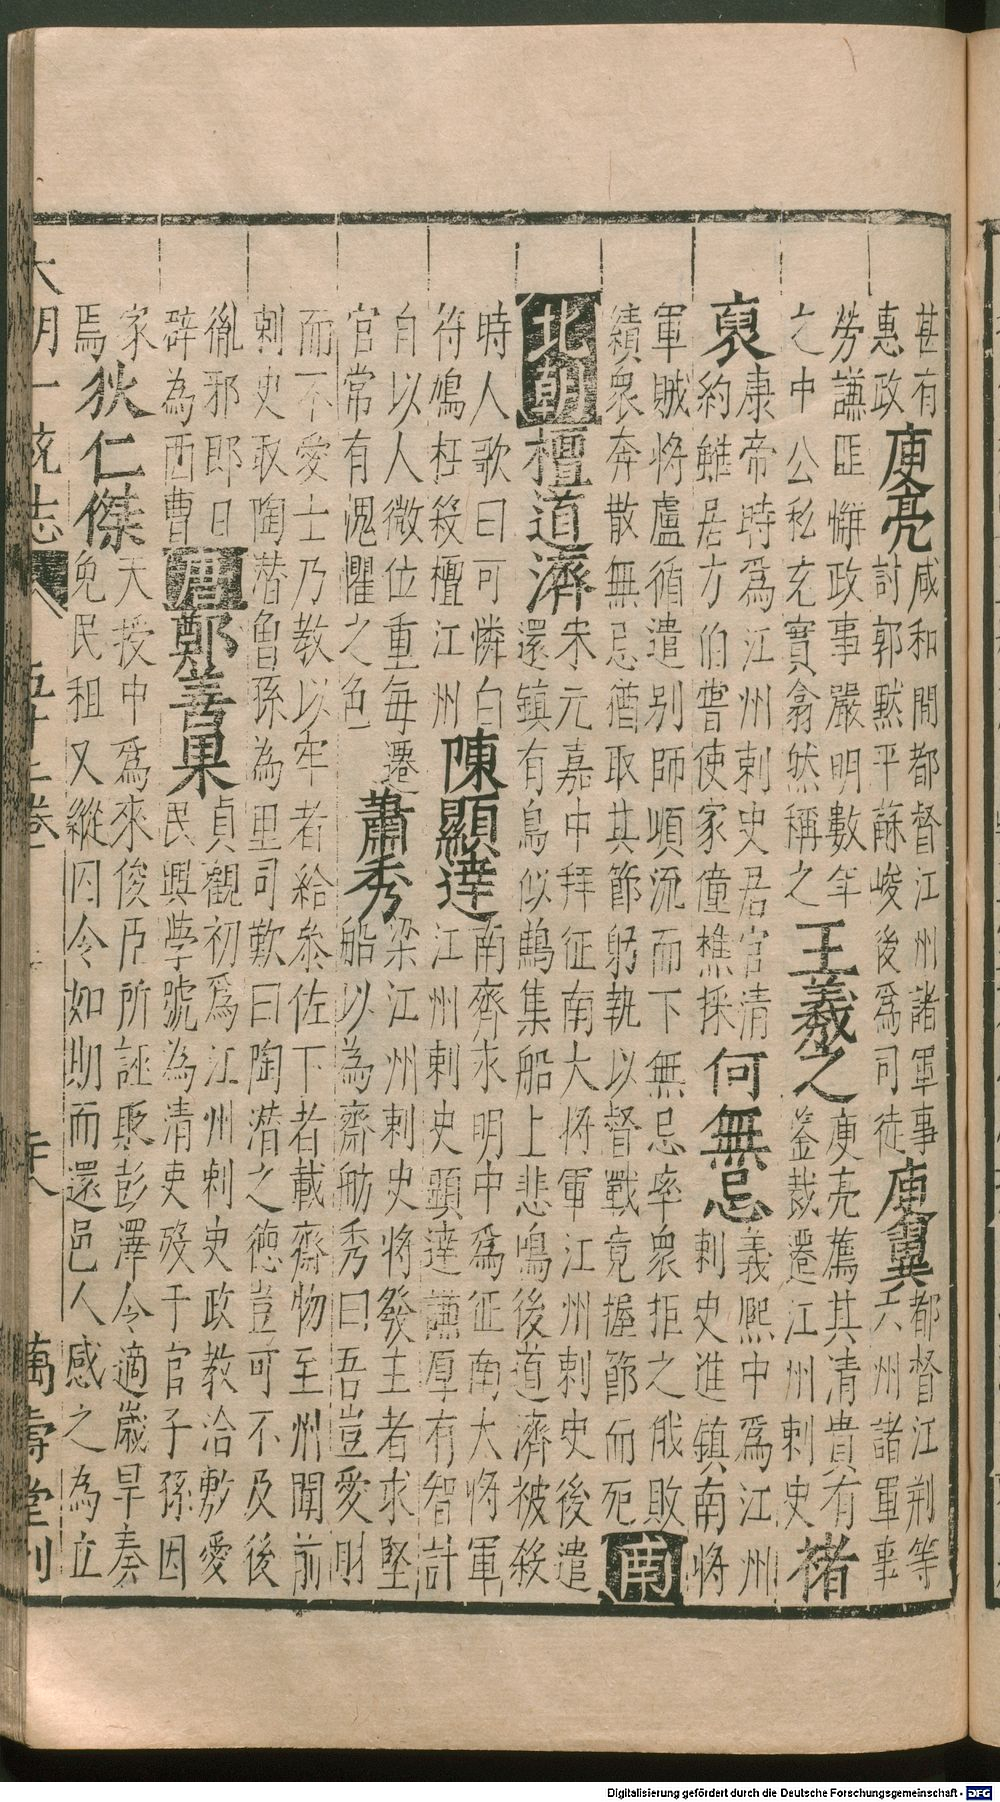 甚有
惠政
庾亮
咸和間都督江州諸軍事
討郭黙平蘇峻後爲司徒
庾翼
都督江荆等
六州諸軍事
勞謙匪懈政事嚴明數年
之中公私充實翕然稱之
王羲之
庾亮薦其清貴有
鑒裁遷江州刺史
褚
裒
康帝時爲江州刺史君官清
約雖居方伯嘗使家僮樵採
何無忌
義熙中爲江州
刺史進鎮南將
軍賊將盧循遣别師順流而下無忌率衆拒之俄敗
績衆奔散無忌猶取其節躬執以督戰竟握節而死
南
北朝
檀道濟
宋元嘉中拜征南大將軍江州刺史後遣
還鎮有鳥似鷁集船上悲鳴後道濟被殺
時人歌曰可憐白
符鳩枉殺檀江州
陳顯達
南齊永明中爲征南大將軍
江州刺史顯達謙厚有智計
自以人微位重每遷
官常有愧懼之色
蕭秀
梁江州刺史將發主者求堅
船以為齋舫秀曰吾豈愛財
而不愛士乃教以牢者給叅佐下者載齋物至州聞前
刺史取陶潜曾孫為里司歎曰陶潜之德豈可不及後
胤邪即日
辟為西曹
唐
鄭善果
貞觀初爲江州刺史政教洽敷愛
民興學號為清吏殁于官子孫因
家
焉
狄仁傑
天授中爲來俊臣所誣貶彭澤令適歲旱奏
免民租又縱囚令如期而還邑人感之為立
大明一統志 卷 萬壽堂刊
Digitalisierung gefördert durch die Deutsche Forschungsgemeinschaft - DFG